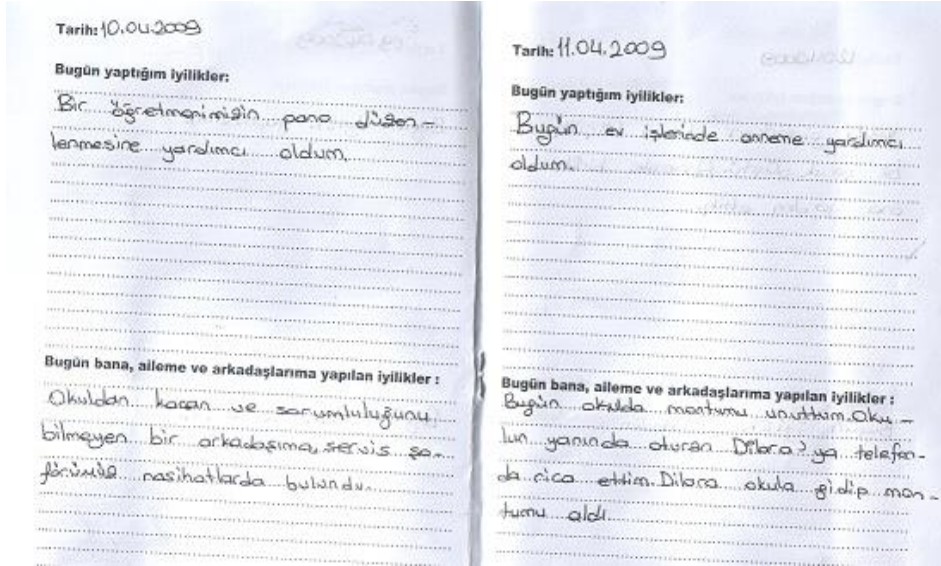 Tarih: 10.04.2009
Bugün yaptığım iyilikler:
Bir öğretmenimizin pano düzen-
lenmesine yardımcı oldum.
Bugün bana, aileme ve arkadaşlarıma yapılan iyilikler :
Okuldan kaçan ve sorumluluğunu
bilmeyen bir arkadaşıma, servis şo-
förümüz nasihatlarda bulundu.
Tarih: 11.04.2009
Bugün yaptığım iyilikler:
Bugün ev işlerinde anneme yardımcı
oldum.
Bugün bana, aileme ve arkadaşlarıma yapılan iyilikler :
Bugün okulda montumu unuttum. Oku-
lun yanında oturan Dilara'ya telefon-
da rica ettim. Dilara okula gidip mon-
tumu aldı.